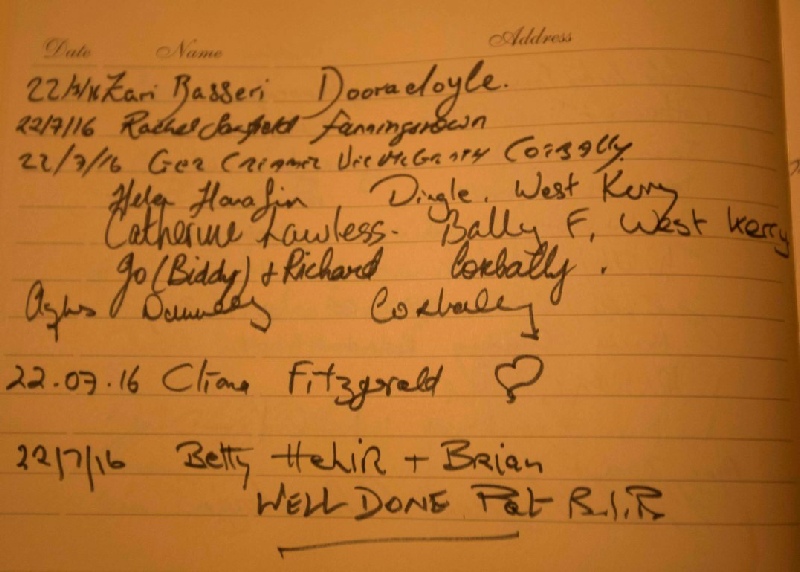 Date Name Address
22/7/16 Zari Basseri Dooradoyle.
22/7/16 Rachel Fanningstown
22/7/16 Ger Vic McGrath Corbally
Helen Hanafin Dingle. West Kerry
Catherine Lawless. Bally F, West Kerry
Jo (Biddy) + Richard Corbally.
Corbally
22.07.16 Cliona Fitzgerald
22/7/16 Betty Hehir + Brian
WELL DONE Pat R.I.P